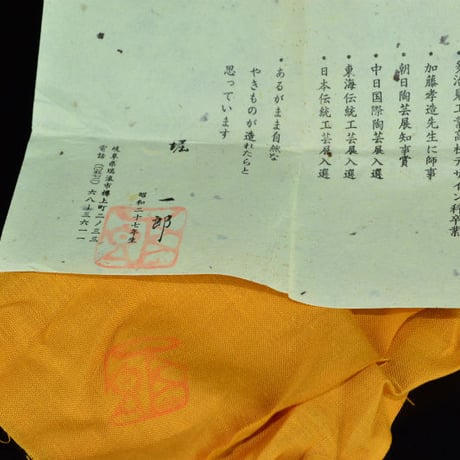 多治見工業高校デザイン科卒業
・加藤孝造先生に師事
・朝日陶芸展知事賞
・中日国際陶芸展入選
・東海伝統工芸展入選
・日本伝統工芸展入選
・あるがまま自然な
やきものが造れたらと
思っています
堀 一郎
昭和二十七年生
岐阜県瑞浪市樽上町二ノ三三